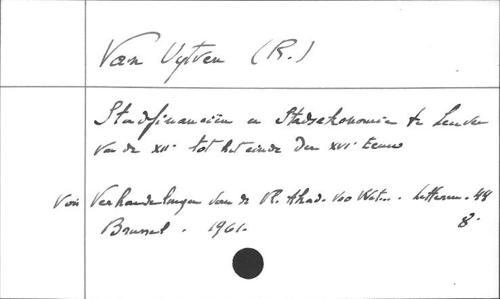 Van Uytven (R.)
Stadsfinanciën en Stadsekonomie te Leuven
van de XIIe tot het einde der XVIe Eeuw
Voir Verhandelingen van de Vl. Akad. voo Wet... Letteren. 44
Brussel. 1961. 8°